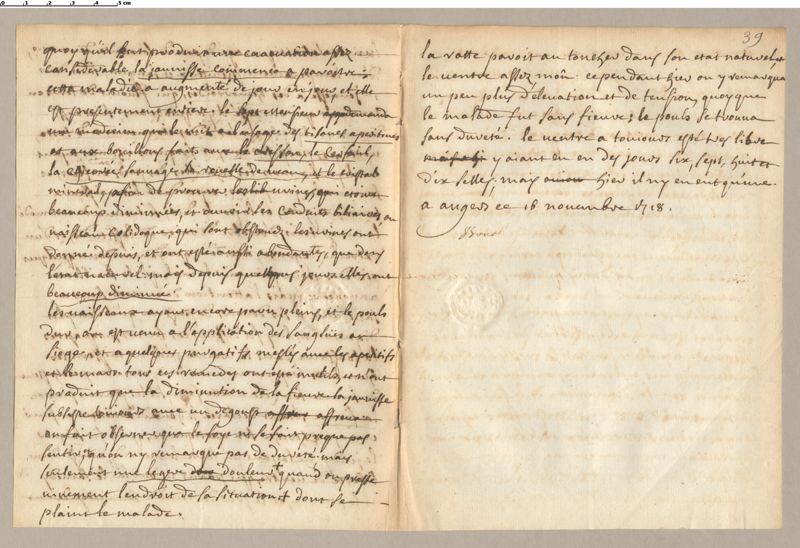 quoy qu'il eut produit une evacuation assez
considerable, la jaunisse commença a paroistre
cette maladie a augmenté de jour en jour et elle
est presentement entiere. le
un medecin qui le mit a l'usage des tisanes aperitives
et aux bouillons faits avec le cresson, le cerfeuil,
la chicorée sauvage de veau, et le cristal
mineral, de procurer les urines, qui etoient
beaucoup diminuées, et d'ouvrir les conduits biliaires ou
vaisseau colidoque, qui sont obstrués. les urines ont
donné depuis, et ont esté aussi abondantes, que dans
l'etat naturel. mais depuis quelques jours elles ont
beaucoup diminué.
les vaisseaux ayant encore paru pleins, et le pouls
dur, on est venu a l'application des sangsues au
siege, et a quelques purgatifs meslés avec les aperitifs
tous ces remedes ont esté inutils, et n'ont
produit que la diminution de la fievre. la jaunisse
subsiste avec un degoust affreux
on fait observer que le foye ne se fait presque pas
sentir, qu'on n'y remarque pas de dureté. mais
seulement une legere douleur quand on presse
vivement l'endroit de sa situation dont se
plaint le malade.
39
la ratte paroit au toucher dans son etat naturel, et
le ventre assez mou. cependant hier on y remarqua
un peu plus d'elevation et de tension, quoy que
le malade fut sans fievre. le pouls se trouva
sans dureté. le ventre a toujours esté tres libre
y aiant eu en des jours six, sept, huit et
dix selles, mais hier il n'y en eut qu'une.
a angers ce 16 novembre 1718.